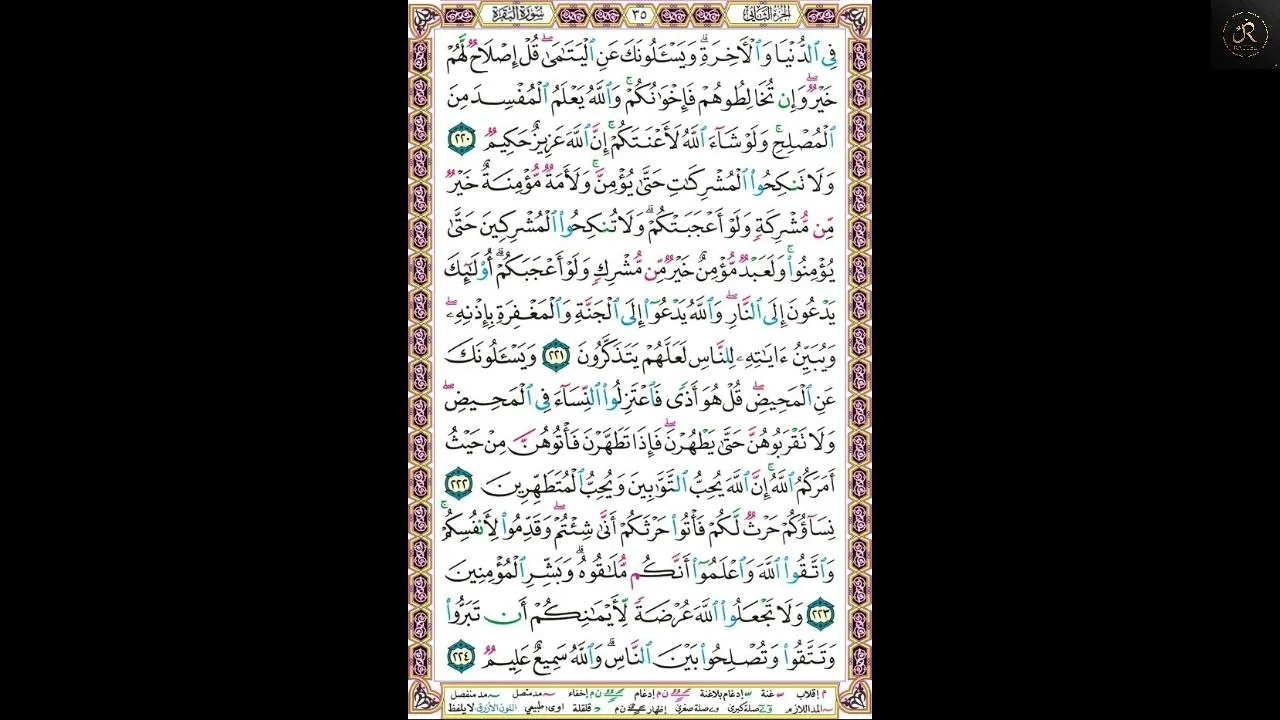 الجزء الثاني ٣٥ سورة البقرة
فِى ٱلدُّنْيَا وَٱلْـَٔاخِرَةِ ۗ وَيَسْـَٔلُونَكَ عَنِ ٱلْيَتَـٰمَىٰ ۖ قُلْ إِصْلَاحٌ لَّهُمْ
خَيْرٌ ۖ وَإِن تُخَالِطُوهُمْ فَإِخْوَٰنُكُمْ ۚ وَٱللَّهُ يَعْلَمُ ٱلْمُفْسِدَ مِنَ
ٱلْمُصْلِحِ ۚ وَلَوْ شَآءَ ٱللَّهُ لَأَعْنَتَكُمْ ۚ إِنَّ ٱللَّهَ عَزِيزٌ حَكِيمٌ ٢٢٠
وَلَا تَنكِحُوا۟ ٱلْمُشْرِكَـٰتِ حَتَّىٰ يُؤْمِنَّ ۚ وَلَأَمَةٌ مُّؤْمِنَةٌ خَيْرٌ
مِّن مُّشْرِكَةٍ وَلَوْ أَعْجَبَتْكُمْ ۗ وَلَا تُنكِحُوا۟ ٱلْمُشْرِكِينَ حَتَّىٰ
يُؤْمِنُوا۟ ۚ وَلَعَبْدٌ مُّؤْمِنٌ خَيْرٌ مِّن مُّشْرِكٍ وَلَوْ أَعْجَبَكُمْ ۗ أُو۟لَـٰٓئِكَ
يَدْعُونَ إِلَى ٱلنَّارِ ۖ وَٱللَّهُ يَدْعُوٓا۟ إِلَى ٱلْجَنَّةِ وَٱلْمَغْفِرَةِ بِإِذْنِهِۦ ۖ
وَيُبَيِّنُ ءَايَـٰتِهِۦ لِلنَّاسِ لَعَلَّهُمْ يَتَذَكَّرُونَ ٢٢١ وَيَسْـَٔلُونَكَ
عَنِ ٱلْمَحِيضِ ۖ قُلْ هُوَ أَذًى فَٱعْتَزِلُوا۟ ٱلنِّسَآءَ فِى ٱلْمَحِيضِ ۖ
وَلَا تَقْرَبُوهُنَّ حَتَّىٰ يَطْهُرْنَ ۖ فَإِذَا تَطَهَّرْنَ فَأْتُوهُنَّ مِنْ حَيْثُ
أَمَرَكُمُ ٱللَّهُ ۚ إِنَّ ٱللَّهَ يُحِبُّ ٱلتَّوَّٰبِينَ وَيُحِبُّ ٱلْمُتَطَهِّرِينَ ٢٢٢
نِسَآؤُكُمْ حَرْثٌ لَّكُمْ فَأْتُوا۟ حَرْثَكُمْ أَنَّىٰ شِئْتُمْ ۖ وَقَدِّمُوا۟ لِأَنفُسِكُمْ ۚ
وَٱتَّقُوا۟ ٱللَّهَ وَٱعْلَمُوٓا۟ أَنَّكُم مُّلَـٰقُوهُ ۗ وَبَشِّرِ ٱلْمُؤْمِنِينَ
٢٢٣ وَلَا تَجْعَلُوا۟ ٱللَّهَ عُرْضَةً لِّأَيْمَـٰنِكُمْ أَن تَبَرُّوا۟
وَتَتَّقُوا۟ وَتُصْلِحُوا۟ بَيْنَ ٱلنَّاسِ ۗ وَٱللَّهُ سَمِيعٌ عَلِيمٌ ٢٢٤
م إقلاب غنة إدغام بلاغنة ن م إدغام ن م إخفاء مد متصل مد منفصل
المد اللازم صلة كبرى صلة صغرى إظهار ن م قلقلة اوى: طبيعي اللون الأزرق لا يلفظ